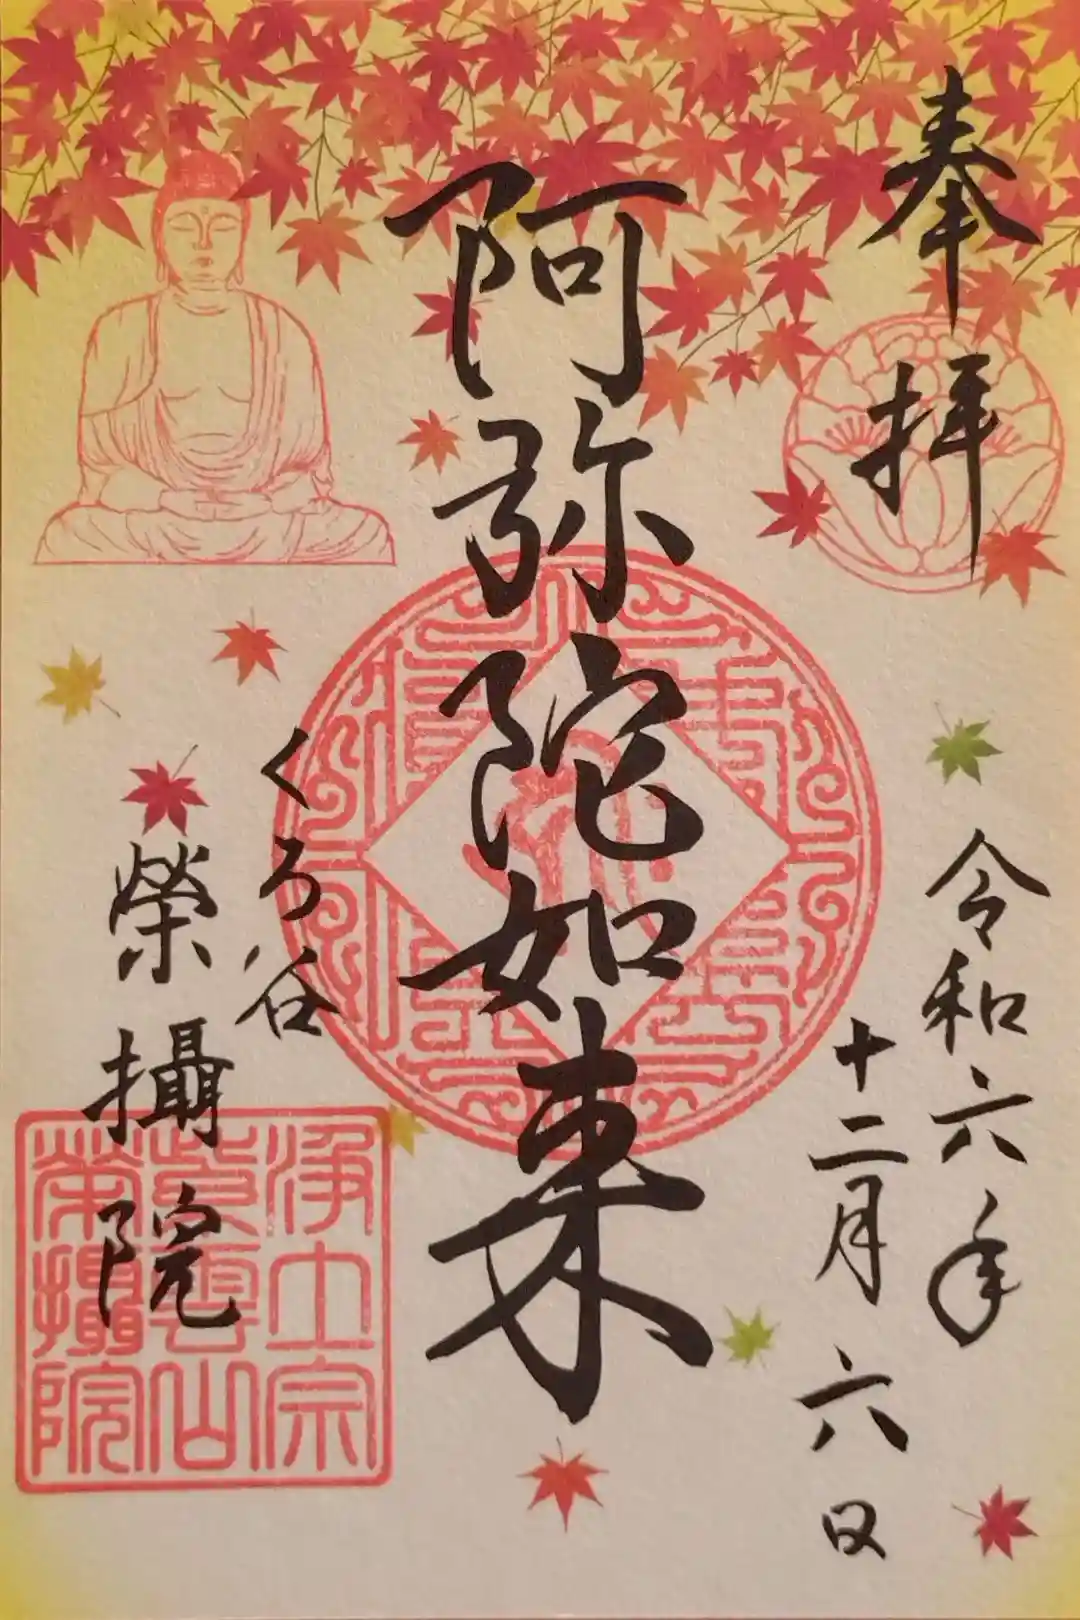 奉拝
令和六年
十二月六日
阿弥陀如来
くろ谷
榮攝院
浄土宗
紫雲山
榮攝院